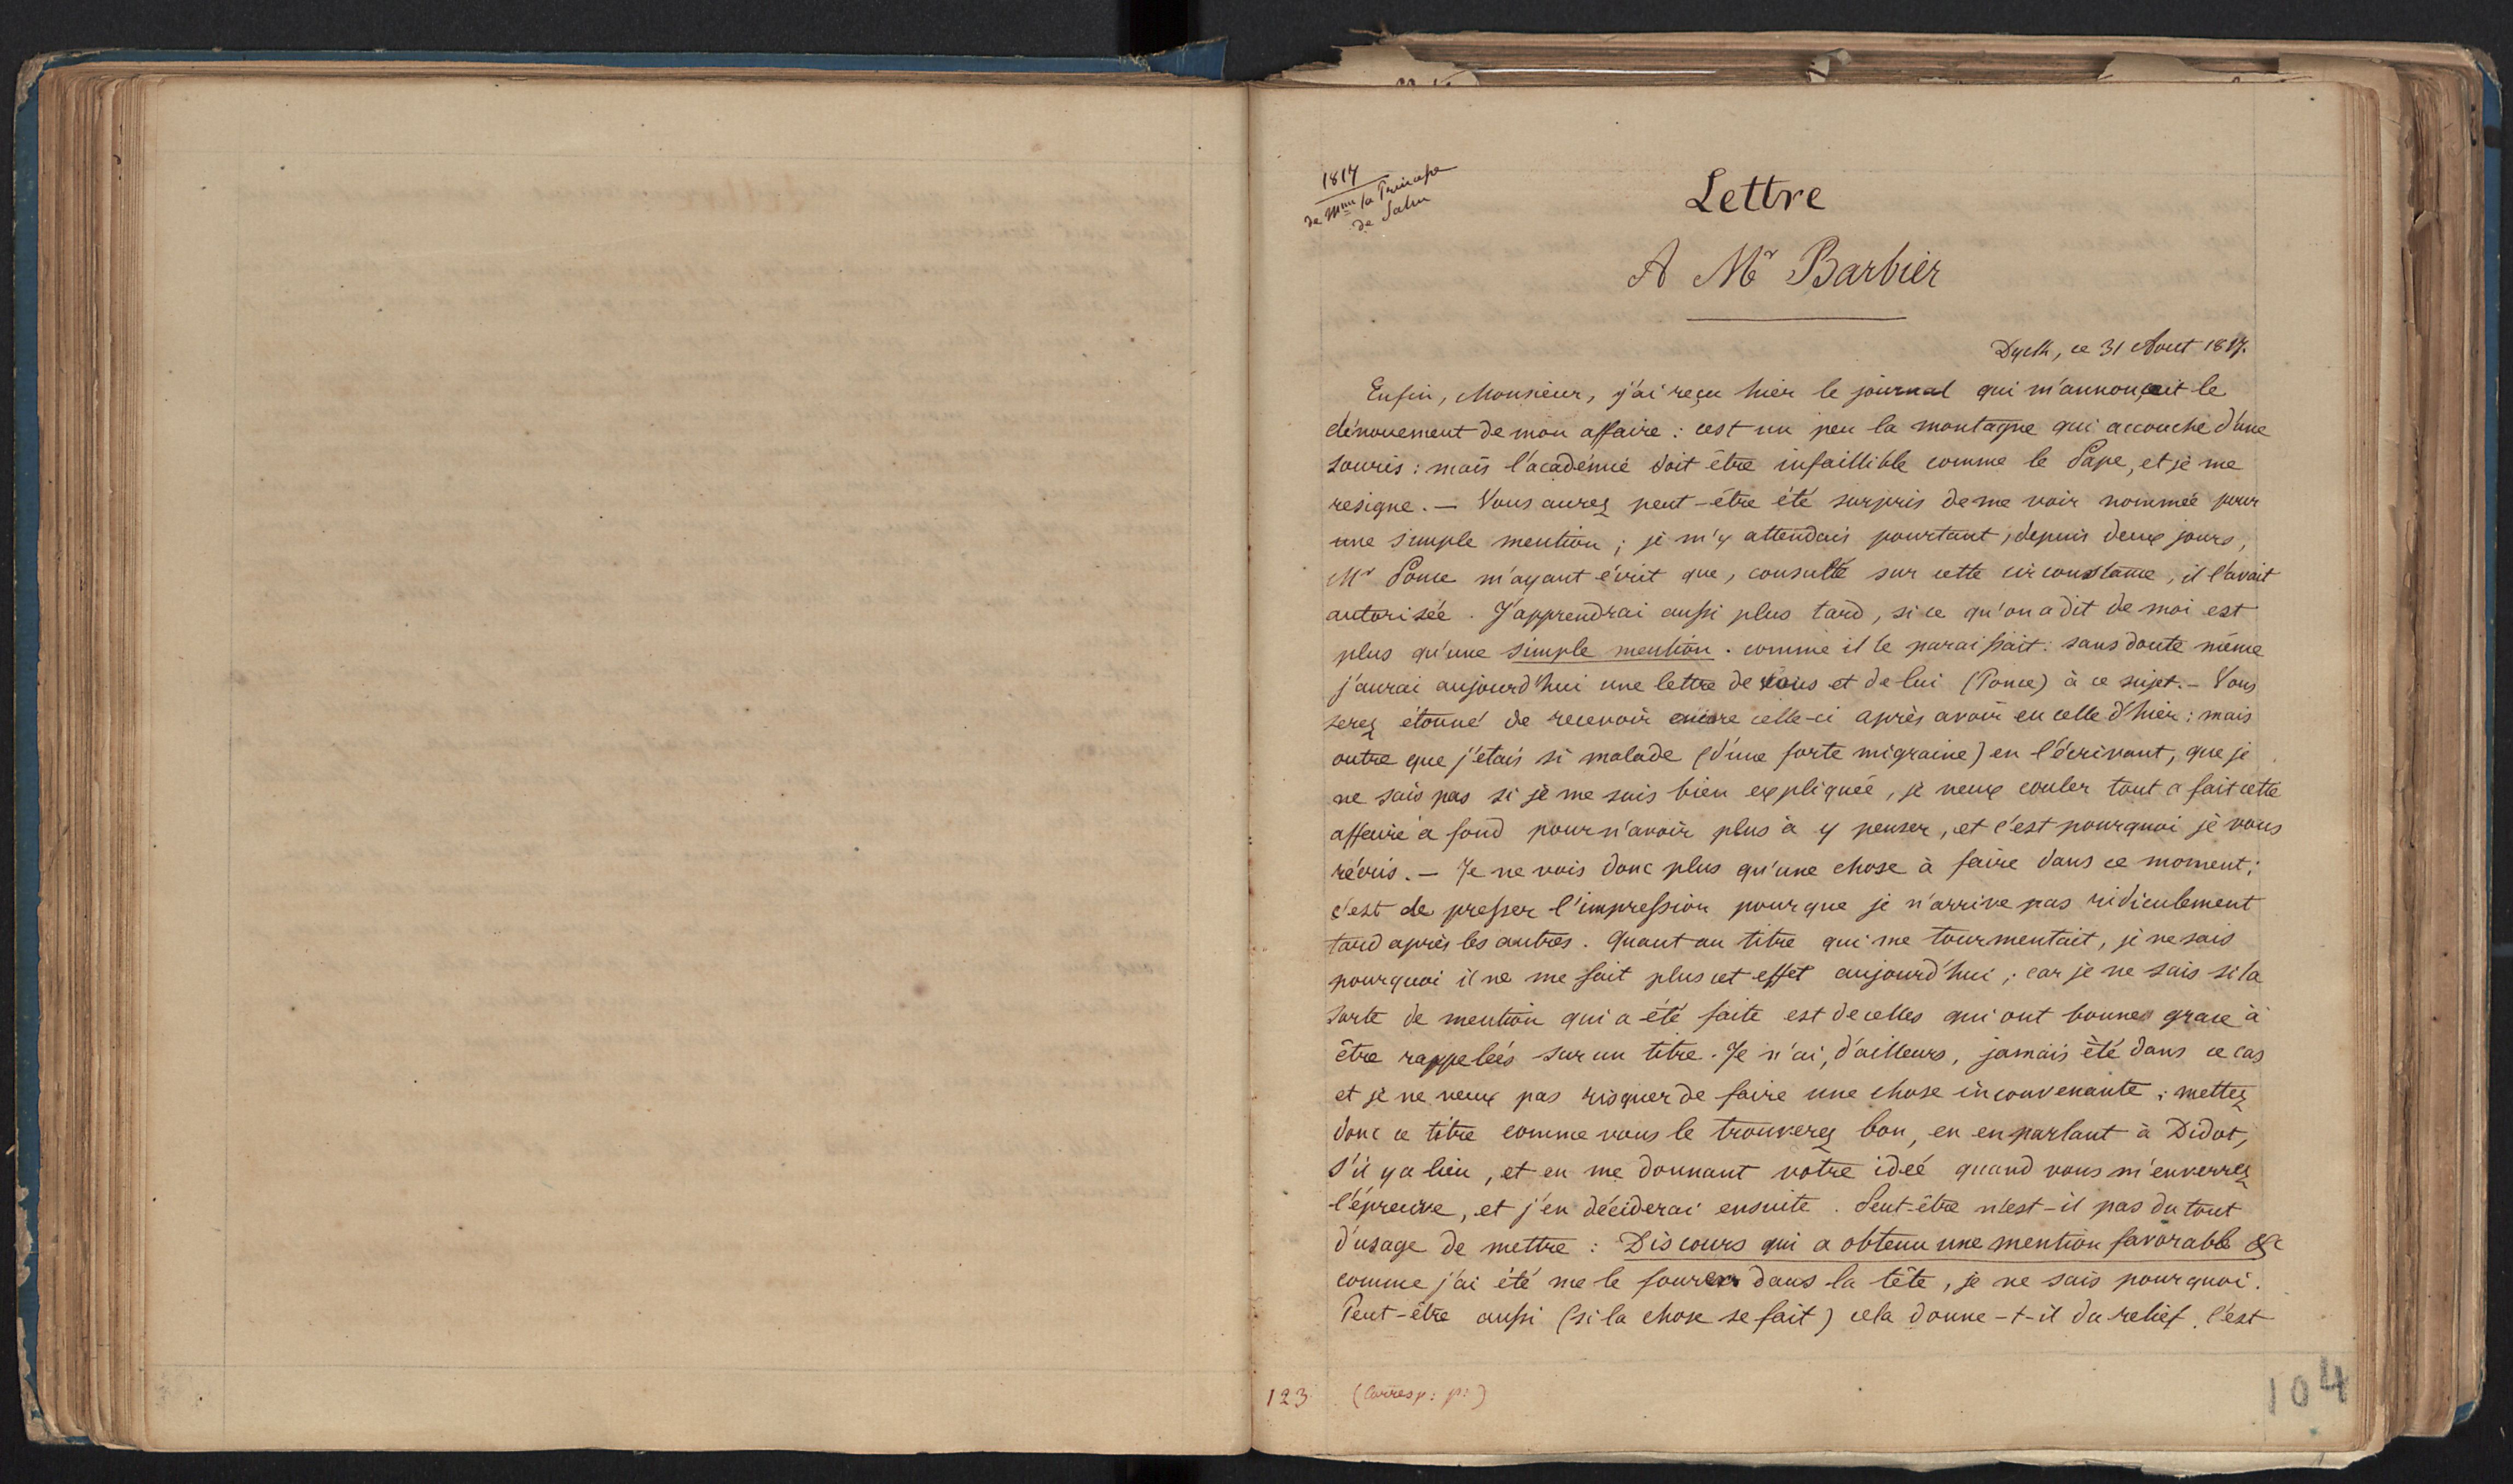 1817
de Mme la Princesse
de Salm
Lettre
A Mr Barbier
Dyck, ce 31 Aout 1817.
Enfin, Monsieur, j'ai reçu hier le journal qui m'annonçait le
dénouement de mon affaire : c'est un peu la montagne qui accouche d'une
souris : mais l'académie doit être infaillible comme le Pape, et je me
resigne. — Vous aurez peut-être été surpris de me voir nommée pour
une simple mention ; je m'y attendais pourtant, depuis deux jours,
Mr Ponce m'ayant écrit que, consulté sur cette circonstance, il l'avait
autorisée. J'apprendrai aussi plus tard, si ce qu'on a dit de moi est
plus qu'une simple mention. comme il le paraissait : sans doute même
j'aurai aujourd'hui une lettre de vous et de lui (Ponce) à ce sujet. — Vous
serez étonné de recevoir encore celle-ci après avoir eu celle d'hier : mais
outre que j'étais si malade (d'une forte migraine) en l'écrivant, que je
ne sais pas si je me suis bien expliquée, je veux couler tout a fait cette
affaire a fond pour n'avoir plus à y penser, et c'est pourquoi je vous
récris. — Je ne vois donc plus qu'une chose à faire dans ce moment ;
c'est de presser l'impression pour que je n'arrive pas ridiculement
tard après les autres. Quant au titre qui me tourmentait, je ne sais
pourquoi il ne me fait plus cet effet aujourd'hui ; car je ne sais si la
sorte de mention qui a été faite est de celles qui ont bonne grace à
être rappelées sur un titre. Je n'ai, d'ailleurs, jamais été dans ce cas
et je ne veux pas risquer de faire une chose inconvenante ; mettez
donc ce titre comme vous le trouverez bon, en en parlant à Didot,
s'il y a lieu, et en me donnant votre idée quand vous m'enverrez
l'épreuve, et j'en déciderai ensuite. Peut-être n'est-il pas du tout
d'usage de mettre : Discours qui a obtenu une mention favorable &c
comme j'ai été me le fourer dans la tête, je ne sais pourquoi.
Peut-être aussi (si la chose se fait) cela donne-t-il du relief. C'est
123 (Corresp: p:)
104